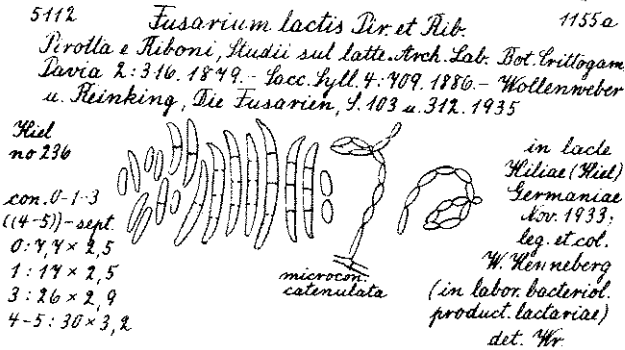 5112 Fusarium lactis Pir. et Rib. 1155a
Pirotta e Riboni, Studii sul latte. Arch. Lab. Bot. Crittogam.
Pavia 2:316. 1879. - Sacc. Syll. 4:709. 1886. - Wollenweber
u. Reinking, Die Fusarien, S. 103 u. 312. 1935
Kiel
no 236
con. 0-1-3
((4-5))-sept.
0: 7,7 × 2,5
1: 17 × 2,5
3: 26 × 2,9
4-5: 30 × 3,2
microcon.
catenulata
in lacte
Kiliae (Kiel)
Germaniae
Nov. 1933;
leg. et col.
W. Henneberg
(in labor. bacteriol.
product. lactariae)
det. Wr.